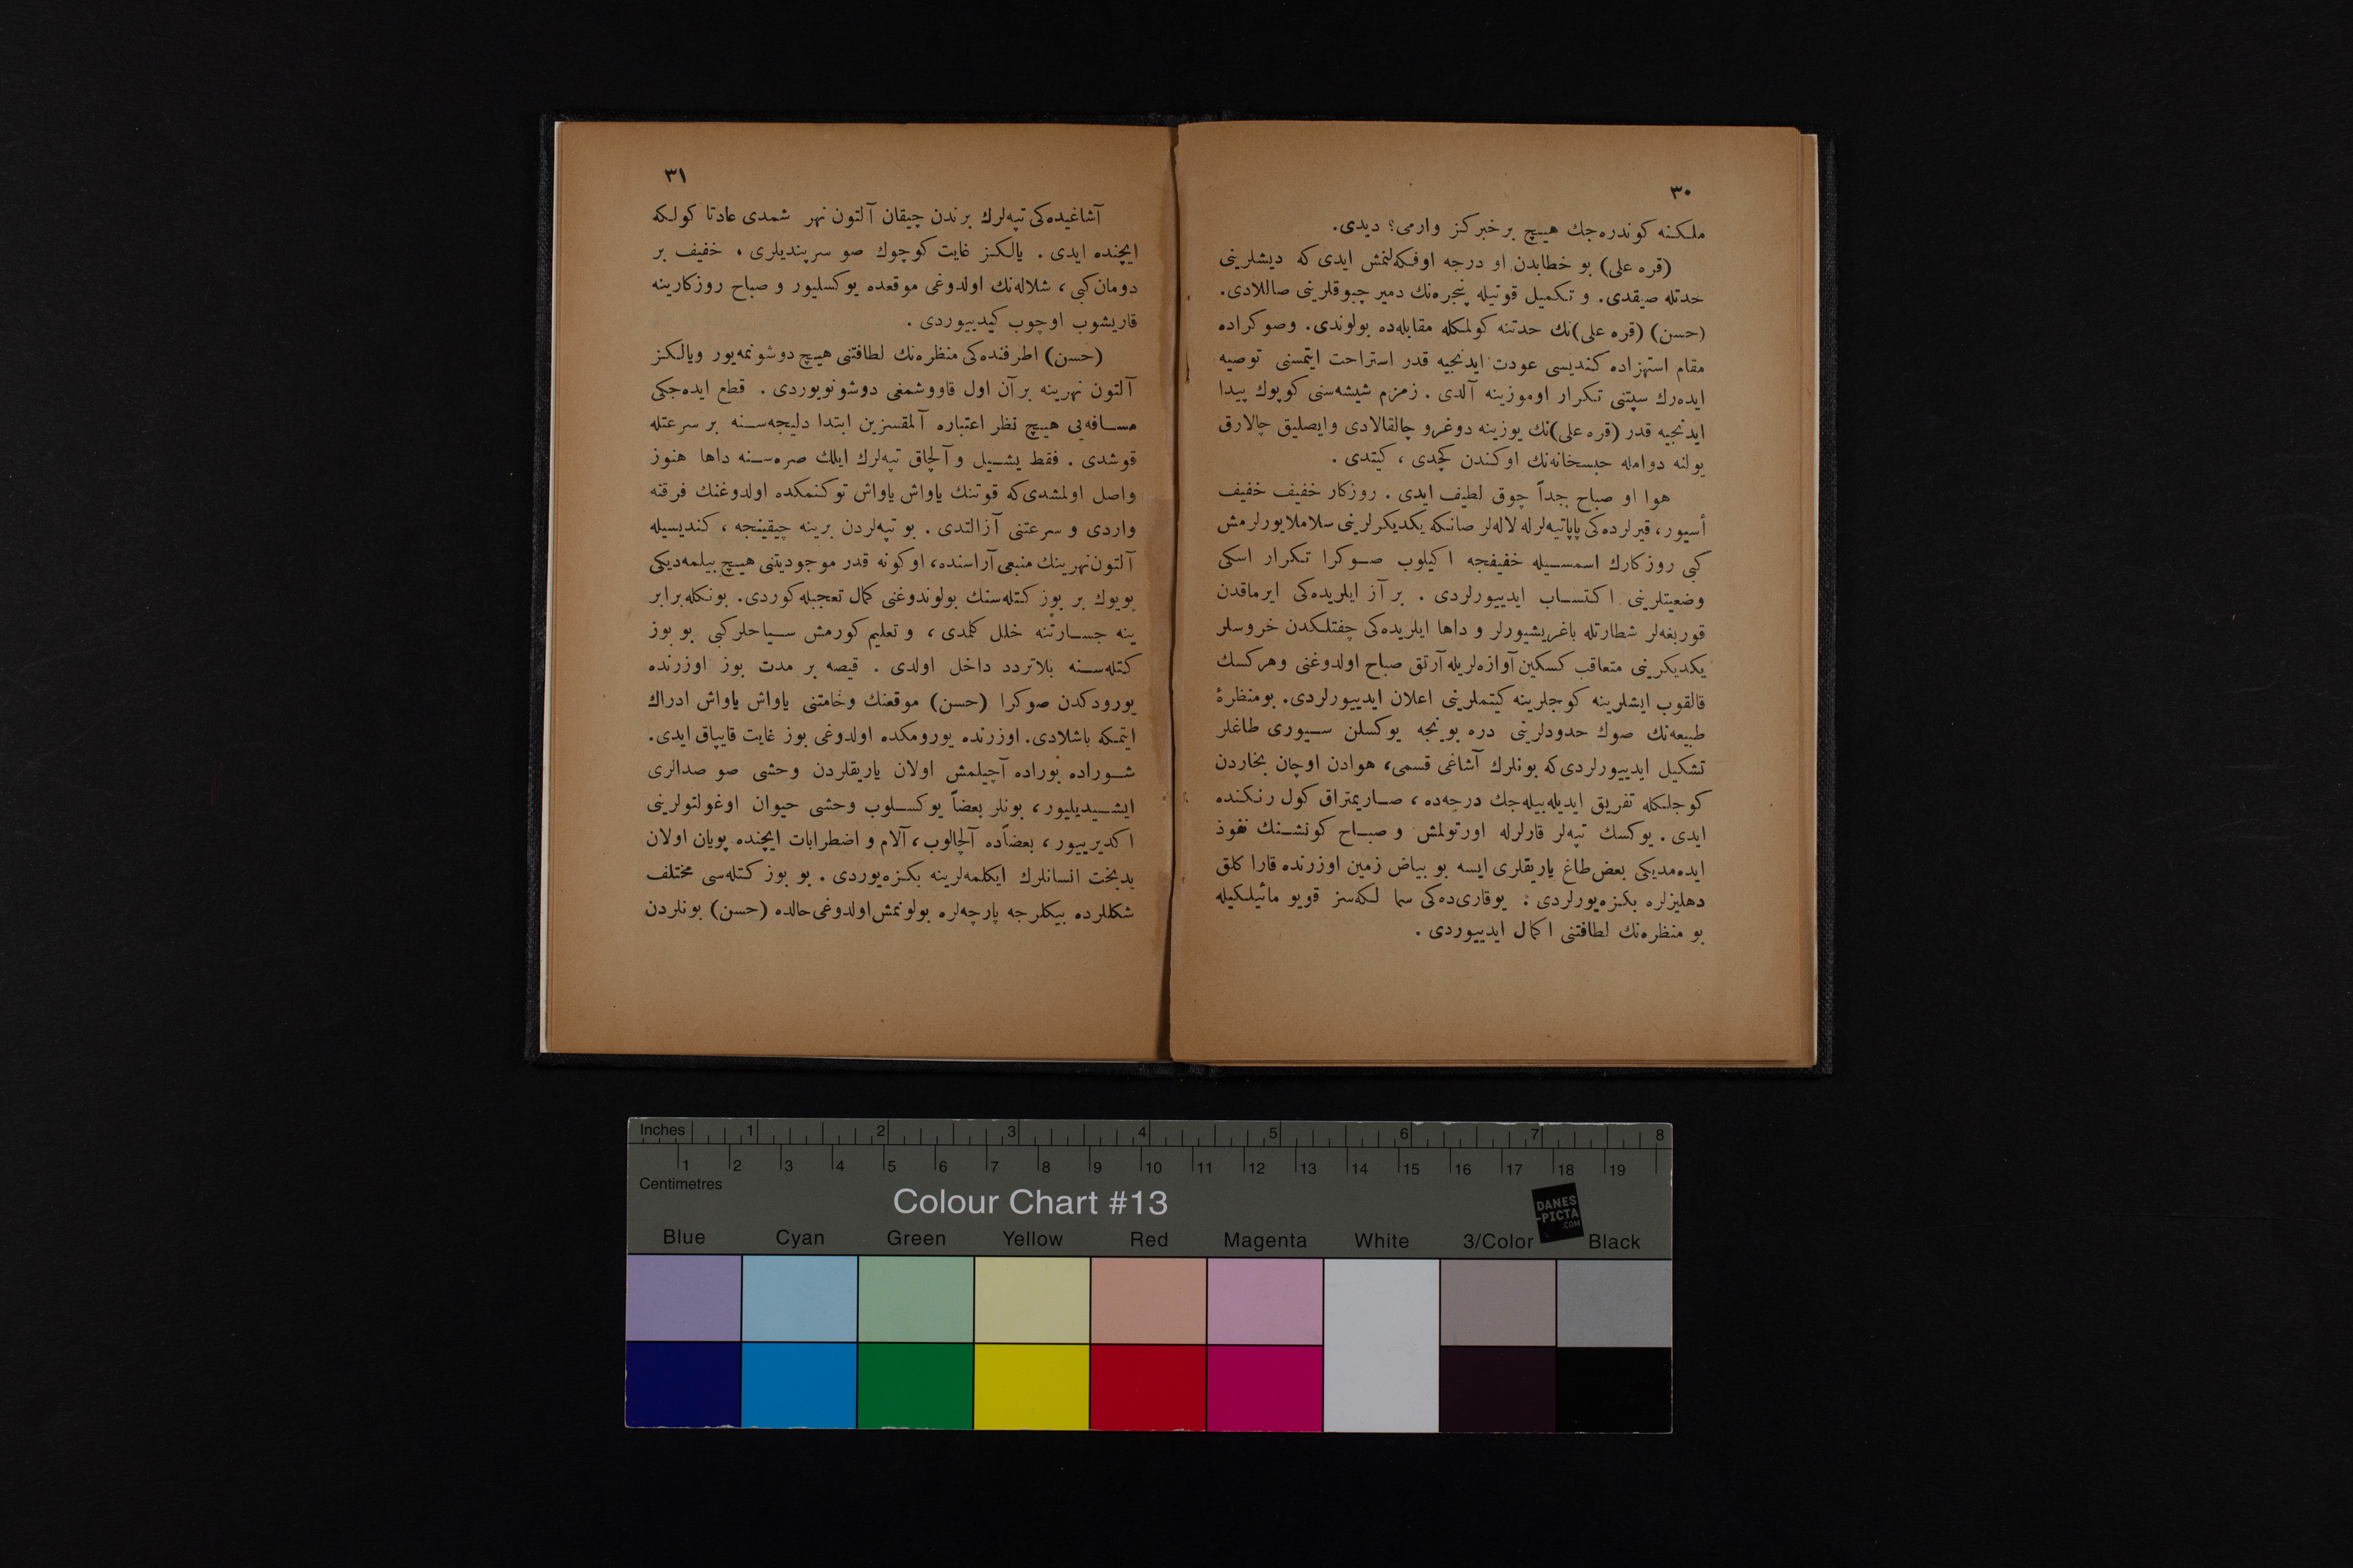 ٣٠
ملكنه كوندره‌جك هيـچ بر خبركز وارمی؟ ديدی.
(قره علی) بو خطابدن او درجه اوفكه‌لنمش ايدی كه ديشلرينی
حدتله صيقدی. و تكميل قوتيله پنجره‌نك دمير چبوقلرينی صاللادی.
(حسن) (قره علی)نك حدتنه كولمكله مقابله‌ده بولوندی. وصوكراده
مقام استهزاده كنديسی عودت ايدنجيه قدر استراحت ايتمسنی توصيه
ايده‌رك سپتنی تكرار اوموزينه آلدی . زمزم شيشه‌سنی كوپوك پيدا
ايدنجيه قدر (قره علی)نك يوزينه دوغرو چالقالادی وايصليق چالارق
يولنه دوامله حبسخانه‌نك اوكندن كچدی ، كيتدی .
هوا او صباح جداً چوق لطيف ايدی . روزكار خفيف خفيف
أسيور، قيرلرده‌كی پاپاتيه‌لرله لاله‌لر صانكه يكديكرلرينی سلاملايورلرمش
كبی روزكارك اسمسـيله خفيفجه اكيلوب صـوكرا تكرار اسكی
وضعيتلرينی اكتسـاب ايدييورلردی . بر آز ايلريده‌كی ايرماقدن
قوربغه‌لر شطارتله باغريشيورلر و داها ايلريده‌كی چفتلكدن خروسلر
يكديكرينی متعاقب كسكين آوازه‌لريله آرتق صباح اولدوغنی وهركسك
قالقوب ايشلرينه كوجلرينه كيتملرينی اعلان ايدييورلردی. بومنظرۀ
طبيعه‌نك صوك حدودلرينی دره بوينجه يوكسلن سـيوری طاغلر
تشكيل ايدييورلردی‌كه بونلرك آشاغی قسمی، هوادن اوچان بخاردن
كوجلكله تفريق ايديله‌بيله‌جك درجه‌ده ، صـاريمتراق كول رنكنده
ايدی . يوكسك تپه‌لر قارلرله اورتولمش و صبـاح كونشـنك نفوذ
ايده‌مديكی بعض طاغ ياريقلری ايسه بو بياض زمين اوزرنده قارا كلق
دهليزلره بكزه‌يورلردی : يوقاری‌ده‌كی سما لكه‌سز قويو مائيلكيله
بو منظره‌نك لطافتنی اكمال ايدييوردی .
٣١
آشاغيده‌كی تپه‌لرك برندن چيقان آلتون نهر شمدی عادتا كولكه
ايچنده ايدی . يالكز غايت كوچوك صو سرپنديلری ، خفيف بر
دومان‌كبی ، شلاله‌نك اولدوغی موقعده يوكسليور و صباح روزكارينه
قاريشوب اوچوب كيدييوردی .
(حسن) اطرفنده‌كی منظره‌نك لطافتنی هيـچ دوشونمه‌يور ويالكز
آلتون نهرينه بر آن اول قاووشمغی دوشونويوردی . قطع ايده‌جكی
مسـافه‌يی هيـچ نظر اعتباره آلمقسزين ابتدا دليجه‌سـنه بر سرعتله
قوشدی . فقط يشـيل و آلچاق تپه‌لرك ايلك صره‌سـنه داها هنوز
واصل اولمشدی‌كه قوتنك ياواش ياواش توكنمكده اولدوغنك فرقنه
واردی و سرعتنی آزالتدی . بو تپه‌لردن برينه چيقينجه ، كنديسيله
آلتون‌نهرينك منبعی آراسنده، اوكونه قدر موجوديتنی هيـچ بيلمه‌ديكی
بويوك بر بوز كتله‌سنك بولوندوغنی كمال تعجبله‌كوردی. بونكله‌برابر
ينه جسـارتنه خلل كلمدی ، و تعليم كورمش سـياحلركبی بو بوز
كتله‌سـنه بلاتردد داخل اولدی . قيصه بر مدت بوز اوزرنده
يورودكدن صوكرا (حسن) موقعنك وخامتنی ياواش ياواش ادراك
ايتمكه باشلادی. اوزرنده يورومكده اولدوغی بوز غايت قايپاق ايدی.
شـوراده بوراده آچيلمش اولان ياريقلردن وحشی صو صدالری
ايشـيديليور ، بونلر بعضاً يوكسـلوب وحشی حيوان اوغولتولرينی
اكديرييور ، بعضاًده آلچالوب ، آلام و اضطرابات ايچنده پويان اولان
بدبخت انسانلرك ايكلمه‌لرينه بكزه‌يوردی . بو بوز كتله‌سی مختلف
شكللرده بيكلرجه پارچه‌لره بولونمش‌اولدوغی‌حالده (حسن) بونلردن
Inches 1 2 3 4 5 6 7 8
1 2 3 4 5 6 7 8 9 10 11 12 13 14 15 16 17 18 19
Centimetres
Colour Chart #13
DANES
-PICTA
.COM
Blue Cyan Green Yellow Red Magenta White 3/Color Black